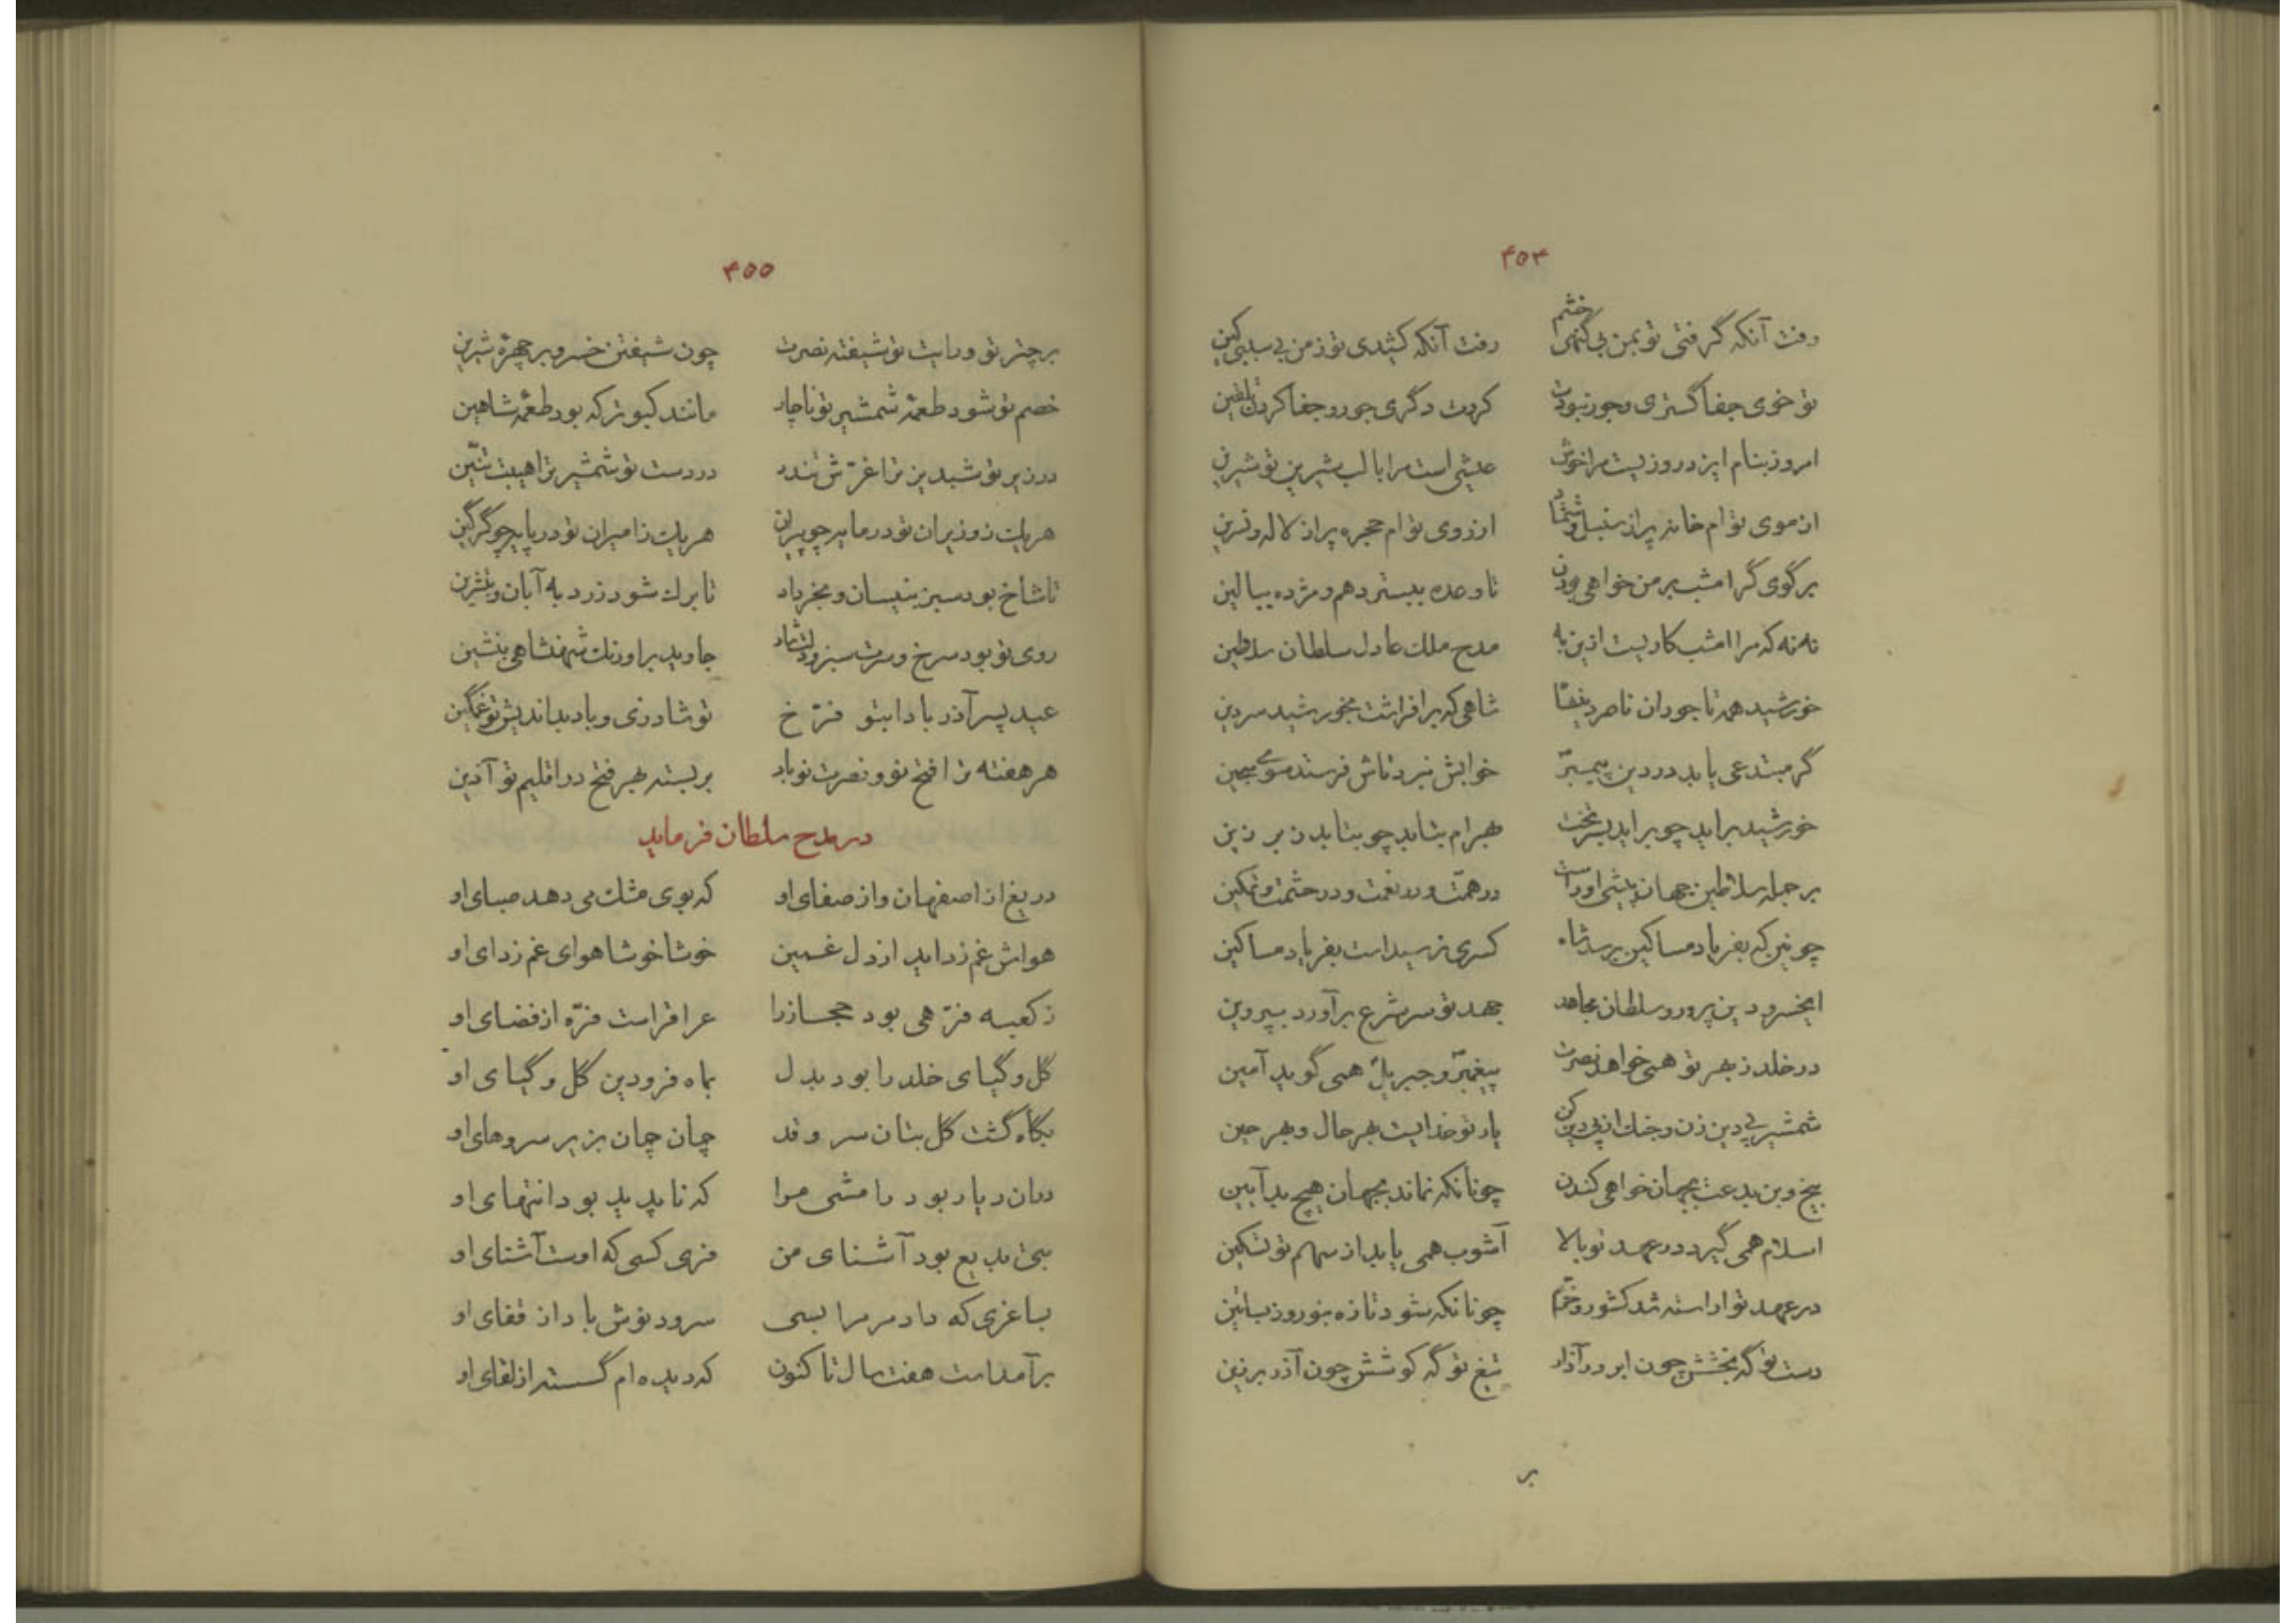 ۴۵۴
رفت آنکه گرفتی تو بمن بی گنهی خشم رفت آنکه کشیدی تو ز من بی سببی کین
تو خوی جفا گستری و جور نبودت کردت دگری جور و جفا کردن تلقین
امروز بنام ایزد روزیست مرا خوش عیشی است مرا با لب شیرین تو شیرین
از موی تو ام خانه پر از سنبل و شمشاد از روی تو ام حجره پر از لاله و نسرین
بر گوی گر امشب بر من خواهی بودن تا وعده ببستر دهم و مژده ببالین
نه نه که مرا امشب کاریست ازین به مدح ملک عادل سلطان سلاطین
خورشید همه تاجوران ناصر دین شاهی که برافراشت بخورشید سر دین
گر مبتدعی یابد در دین پیمبر خوابش نبرد تاش فرستد سوی سجین
خورشید براید چو براید بسر تخت بهرام بتابد چو بتابد ز بر زین
بر جمله سلاطین جهان پیشی او راست در همت و در نعمت و در حشمت و تمکین
چونین که بفریاد مساکین برسد شاه کسری نرسیداست بفریاد مساکین
ایخسرو دین پرور و سلطان مجاهد جهد تو سر شرع برآورد بپروین
در خلد ز بهر تو همی خواهد نصرت پیغمبر و جبریل همی گوید آمین
شمشیر پی دین زن و جنک از پی دین کن یار تو خدایست بهر حال و بهر حین
بیخ و بن بدعت بجهان خواهی کندن چونانکه نماند بجهان هیچ بد آیین
اسلام همی گیرد در عهد تو بالا آشوب همی یابد از سهم تو تسکین
در عهد تو اراسته شد کشور و خرم چونانکه شود تازه بنوروز بساتین
دست تو گه بخشش چون ابر در آذار تیغ تو گه کوشش چون آذر برزین
بر
۴۵۵
بر چتر تو و رایت تو شیفته نصرت چون شیفتن خسرو بر چهرهٔ شیرین
خصم تو شود طعمهٔ شمشیر تو ناچار مانند کبوتر که بود طعمهٔ شاهین
در زیر تو شبدیز ترا غرش تندر در دست تو شمشیر ترا هیبت تنین
هریک ز وزیران تو در مایه چو پیران هریک ز امیران تو در پایه چو گرگین
تا شاخ بود سبز بنیسان و بخرداد تا برک شود زرد به آبان و بتشرین
روی تو بود سرخ و سرت سبز و دلت شاد جاوید براورنک شهنشاهی بنشین
عید پسر آذر بادا بتو فرخ تو شاد زی و باد بداندیش تو غمگین
هر هفته ترا فتح نو و نصرت نو باد بر بسته بهر فتح در اقلیم تو آذین
در مدح سلطان فرماید
دریغ از اصفهان و از صفای او که بوی مشک می دهد صبای او
هواش غم زداید از دل غمین خوشا خوشا هوای غم زدای او
ز کعبه فرهی بود حجاز را عراقراست فره از فضای او
گل و گیای خلد را بود بدل بماه فرودین گل و گیای او
بگاه گشت گل بتان سرو قد چمان چمان بزیر سروهای او
دران دیار بود رامشی مرا که ناپدید بود انتهای او
بتی بدیع بود آشنای من فری کسی که اوست آشنای او
بساغری که داد مر مرا بسی سرود نوش باد از قفای او
برآمداست هفت سال تا کنون که دیده ام گسسته از لقای او